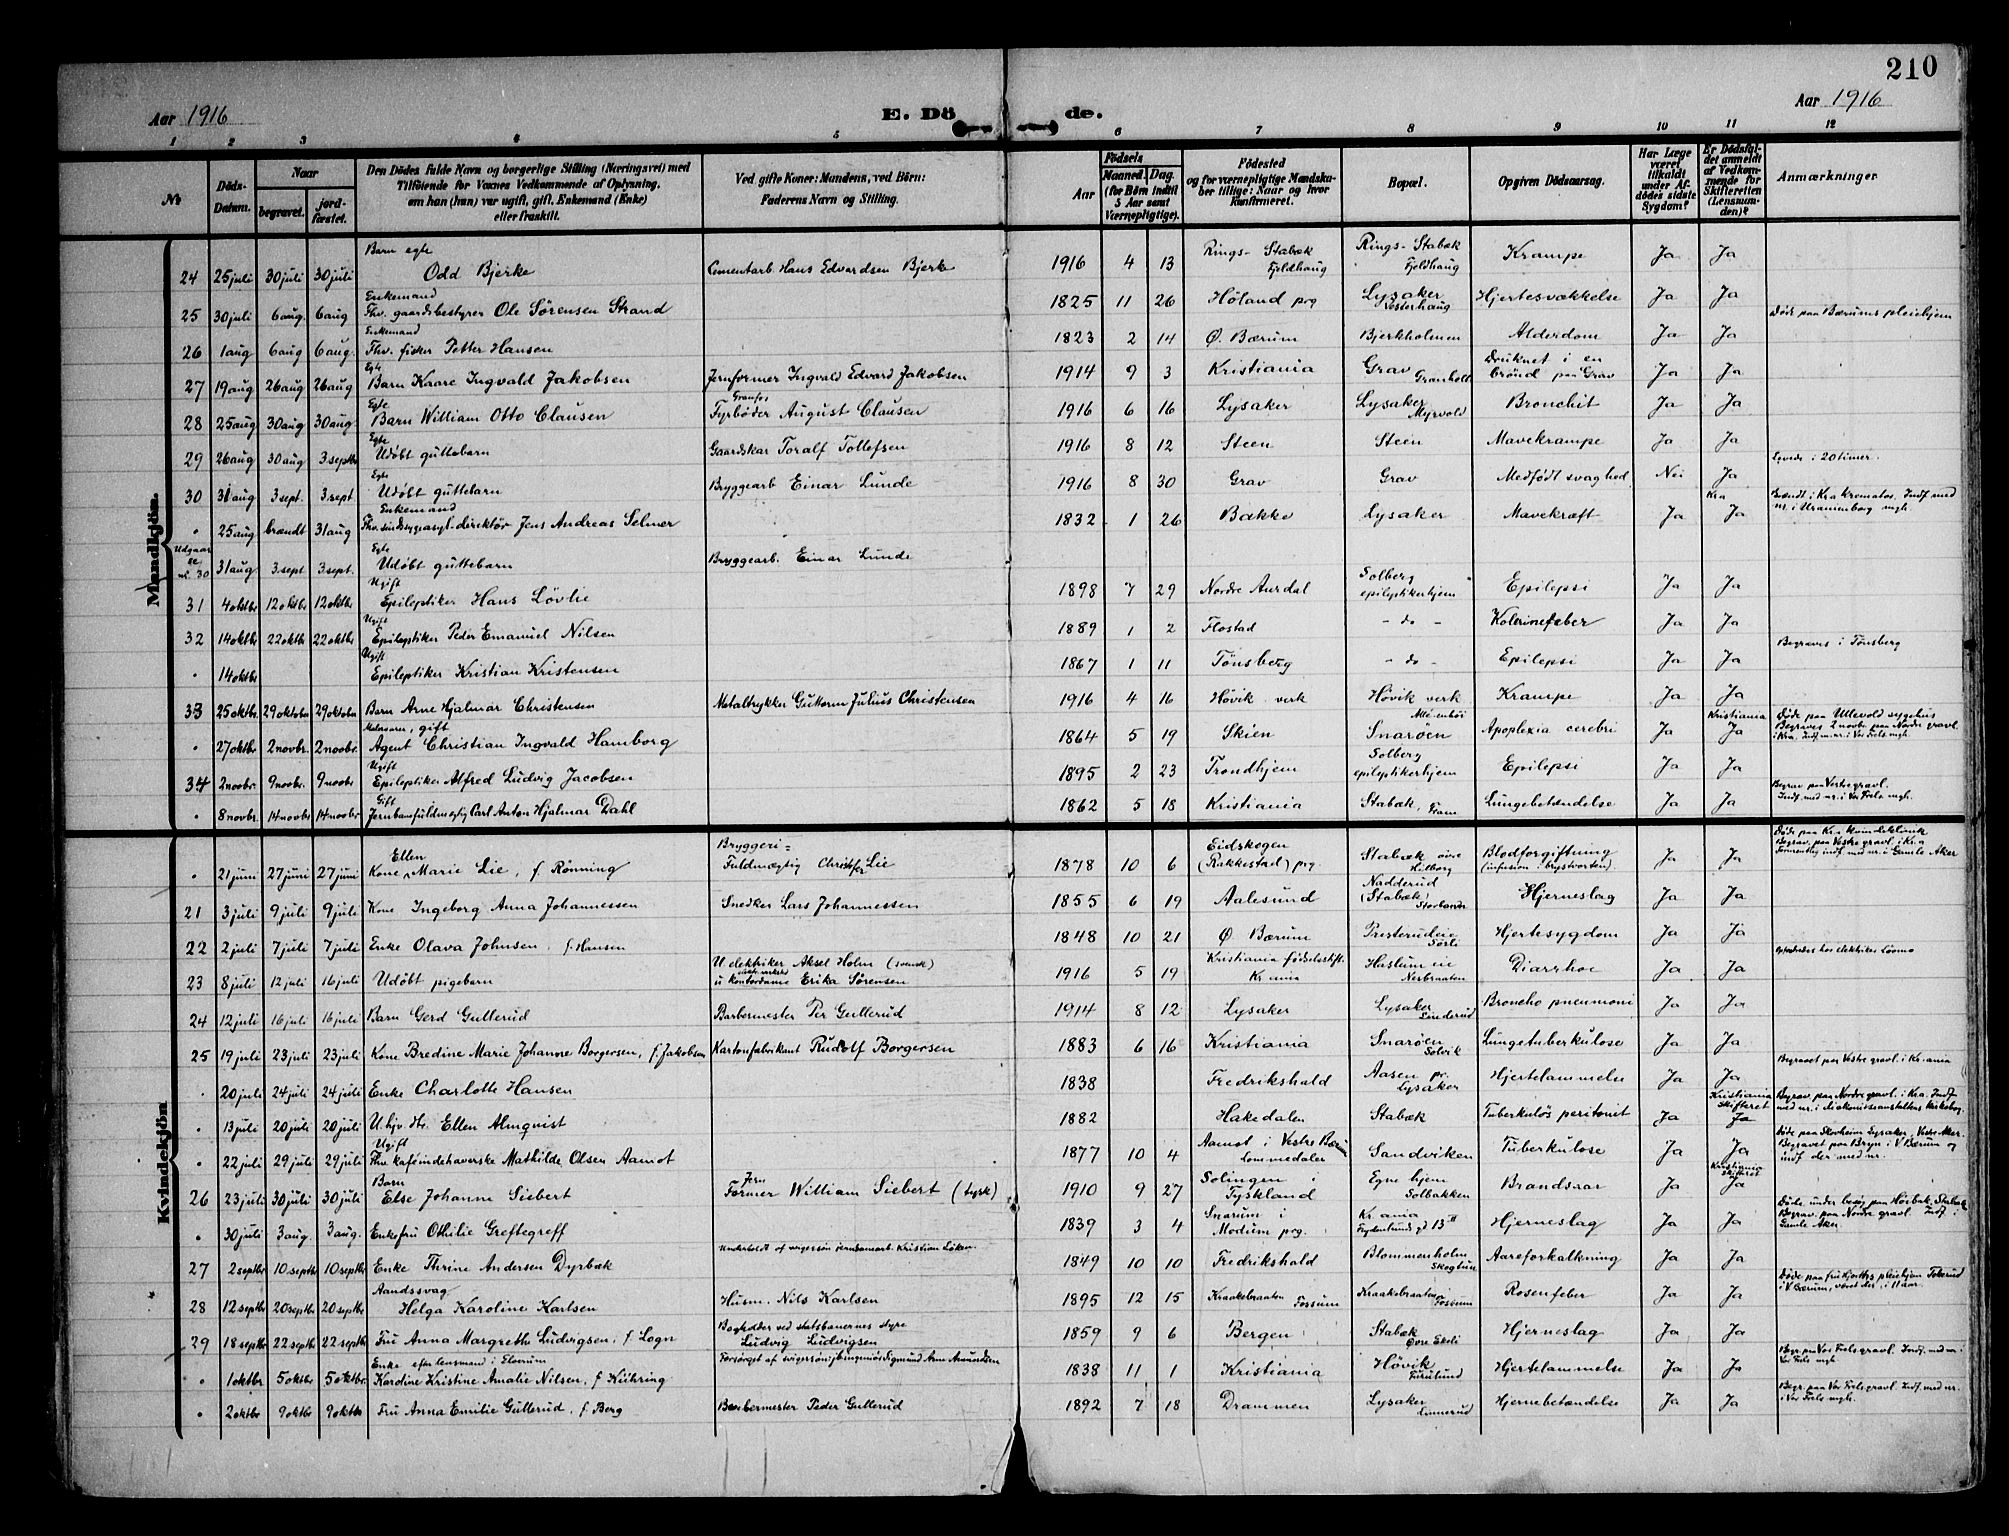 210
Aar 1916 E. Döde. Aar 1916
1 2 3 4 5 6 7 8 9 10 11 12
№
Döds-Datum.
Naar
begravet.
jordfæstet.
Den Dödes fulde Navn og borgerlige Stilling (Næringsvei) med Tilföiende for Voxnes Vedkommende af Oplysning, om han (hun) var ugift, gift, Enkemand (Enke) eller fraskilt.
Ved gifte Koner: Mandens, ved Börn: Faderens Navn og Stilling.
Födsels
Aar
Maaned. Dag.
(for Börn indtil 5 Aar samt Værnepligtige).
Födested og for værnepligtige Mandskaber tillige: Naar og hvor Konfirmeret.
Bopæl.
Opgiven Dödsaarsag.
Har Læge været tilkaldt under Afdödes sidste Sygdom?
Er Dödsfaldet anmeldt af Vedkommende for Skifteretten (Lensmanden)?
Anmærkninger
Mandkjön.
24 25 juli 30 juli 30 juli Barn egte Odd Bjerke Cementarb Hans Edvardsen Bjerke 1916 4 13 Rings-Stabæk Fjeldhaug Rings-Stabæk Fjeldhaug Krampe Ja Ja
25 30 juli 6 aug 6 aug Enkemand Fhv. gaardsbestyrer Ole Sörensen Strand 1825 11 26 Höland prg Lysaker Vesterhaug Hjertesvækkelse Ja Ja Döde paa Bærums pleiehjem
26 1 aug 6 aug 6 aug. Enkemand Fhv. fisker Petter Hansen 1823 2 14 Ø. Bærum Bjerkholmen Alderdom Ja Ja
27 19 aug 26 aug 26 aug Egte Barn Kaare Ingvald Jakobsen Jernformer Ingvald Edvard Jakobsen 1914 9 3 Kristiania Grav Granholt Druknet i en brönd paa Grav Ja Ja
28 25 aug 30 aug 30 aug. Egte Barn William Otto Clausen Fyrböder August Clausen 1916 6 16 Lysaker Lysaker Myrvold Bronchit Ja Ja
29 26 aug 30 aug 3 septbr Egte Udöbt guttebarn Gaardskar Toralf Tollefsen 1916 8 12 Steen Steen Mavekrampe Ja Ja
30 31 aug 3 sept. 3 sept Egte Udöbt guttebarn Bryggearb Einar Lunde 1916 8 30 Grav Grav Medfödt svaghed Nei Ja Levede i 20 timer.
" 25 aug brændt 31 aug Enkemand Fhv. sindssygeasyl. direktör Jens Andreas Selmer 1832 1 26 Bakke Lysaker Mavekræft Ja Kra Ja Brændt i Kra krematos. Indf med nr. i Uranienborg mgh
Udgaar se nr 30 31 aug 3. sept 3 sept. Egte Udöbt guttebarn Bryggearb. Einar Lunde
31 4 oktbr 12 oktbr 12 oktbr Ugift Epileptiker Hans Lövlie 1898 7 29 Nordre Aurdal Solberg epileptikerhjem Epilepsi Ja Ja
32 14 oktbr 22 oktbr 22 oktbr Ugift Epileptiker Peder Emanuel Nilsen 1889 1 2 Flostad - do - Kolerinefeber Ja Ja
" 14 oktbr Ugift Epileptiker Kristian Kristensen 1867 1 11 Tönsberg - do - Epilepsi Ja Ja Begraves i Tönsberg
33 25 oktbr. 29 oktober 29 oktober Barn Arne Hjalmar Christensen Metaltrykker Guttorm Julius Christensen 1916 4 16 Hövik verk Hövik verk Krampe Ja Ja
" 27 oktbr 2 novbr. 2 novbr. gift Agent Christian Ingvald Hamborg 1864 5 19 Skien Snaröen Apoplexia cerebri Ja Kristiania Ja Döde paa Ullevold sygehus Begraves 2 novbr. paa Nordre gravl. i Kra. Indf. m. nr. i Vor Frels. mgh.
34 2 novbr. 9 novbr. 9 novbr Ugift Epileptiker Alfred Ludvig Jacobsen 1895 2 23 Trondhjem Solberg epileptikerhjem Epilepsi Ja Ja
" 8 novbr. 14 novbr 14 novbr Gift Jernbanefuldmegtig Carl Anton Hjalmar Dahl 1862 5 18 Kristiania Stabæk, Fram Lungebetændelse Ja Ja Begrav paa Vestre gravl. Indf. med nr. i Vor Frels mgh.
Kvindekjön
" 21 juni 27 juni 27 juni Kone, Ellen Marie Lie, f. Rönning Bryggeri-Fuldmægtig Christofer Lie 1878 10 6 Eidskogen (Rakkestad) prg. Stabæk övre Lilborg Blodforgiftning (infusion i brystvorten) Ja Ja Döde paa Kra kvindeklinik Begrav. paa Vestre gravl. i Kra indf. med nr. i Gamle Aker
21 3 juli 9 juli 9 juli Kone Ingeborg Anna Johannessen Snedker Lars Johannessen 1855 6 19 Aalesund Nadderud (Stabæk) Hjerneslag Ja Ja
22 2 juli 7 juli 7 juli Enke Olava Johnsen, f. Hansen 1848 10 21 Ø. Bærum Presterudeie Sörli Hjertesygdom Ja Ja
23 8 juli 12 juli 16 juli Udöbt pigebarn U elektriker Aksel Holm (svensk) u kontordame Erika Sörensen 1916 5 19 Kristiania födselsstift. Kr.ania Haslum eie Nesbraaten Diarrhoe Ja Ja
24 12 juli 16 juli 16 juli Barn Gerd Gullerud Barbermester Per Gullerud 1914 8 12 Lysaker Lysaker Linderud Broncho pneumoni Ja Ja
25 19 juli 23 juli 23 juli Kone Bredine Marie Johanne Borgersen, f. Jakobsen Kartonfabrikant Rudolf Borgersen 1883 6 16 Kristiania Snaröen Solvik Lungetuberkulose Ja Ja
" 20 juli 24 juli 24 juli Enke Charlotte Hansen 1838 Fredrikshald Aasen pr. Lysaker Hjertelammelse Ja Ja Begravet paa Vestre gravl. i Kr.ania
" 13 juli 20 juli 20 juli U. hjv. Fr. Ellen Almqvist 1882 Hakedalen Stabæk Tuberkulös peritonit Ja Kristiania Skifteret Ja Begrav. paa Nordre gravl. i Kra. Indf. med nr. i diakonisseanstaltens kirkebog.
" 22 juli 29 juli 29 juli Ugift Fhv. kaféindehaverske Mathilde Olsen Aamot 1877 10 4 Aamot i Vestre Bærum Lommedalen Sandviken Tuberkulose Ja Ja Döde paa Storheim Lysaker, Vestre Aker. Begravet paa Bryn i V Bærum og indf der med nr.
26 23 juli 30 juli 30 juli Barn Else Johanne Siebert Jern Former William Siebert (tysk) 1910 9 27 Solingen i Tyskland Egne hjem Solbakken Brandsaar Ja Kristiania skifteret Ja
" 30 juli 3 aug. 3 aug. Enkefru Othilie Greftegreff 1839 3 4 Snarum i Modum prg. Kr.ania Frydenlund gd 13 II Hjerneslag Ja Ja Döde under besög paa Höibak, Stabæk Begrav. paa Nordre gravl. Indf. i Gamle Aker
27 2 septbr 10 septbr 10 septbr Enke Thrine Andersen Dyrbæk Underholdt af svigersön jernbanearb. Kristian Löken 1849 10 10 Fredrikshald Blommenholm Skogtun Aareforkalkning Ja Ja
28 12 septbr 20 septbr 20 septbr Aandssvag Helga Karoline Karlsen Husm. Nils Karlsen 1895 12 15 Kraakebraaten Fossum Kraakebraaten Fossum Rosenfeber Ja Ja Döde paa fru Hjorths pleiehjem Tokerud i V. Bærum, været der i 11 aar.
29 18 septbr 22 septbr 22 septbr Fru Anna Margrethe Ludvigsen, f. Logn Bogholder ved statsbanernes styre Ludvig Ludvigsen 1859 9 6 Bergen Stabæk Övre Ekeli Hjerneslag Ja Ja
" 1 oktbr 5 oktbr 5 oktbr. Enke efter lensmand i Elverum Karoline Kristine Amalie Nilsen, f. Kühring Forsörget af svigersön ingeniör Sigmund Arne Amundsen 1838 11 1 Kristiania Hövik Furulund Hjertelammelse Ja Ja Begr. paa Vor Frels gravl. Indf. med nr. i Vor Frels mgh.
" 2 oktbr 9 oktbr 9 oktbr Fru Anna Emilie Gullerud, f. Berg Barbermester Peder Gullerud 1892 7 18 Drammen Lysaker Linnerud Hjernebetændelse Ja Ja Begr. paa Vor Frels gravl. Indf. med nr. i Vor Frels mgh.